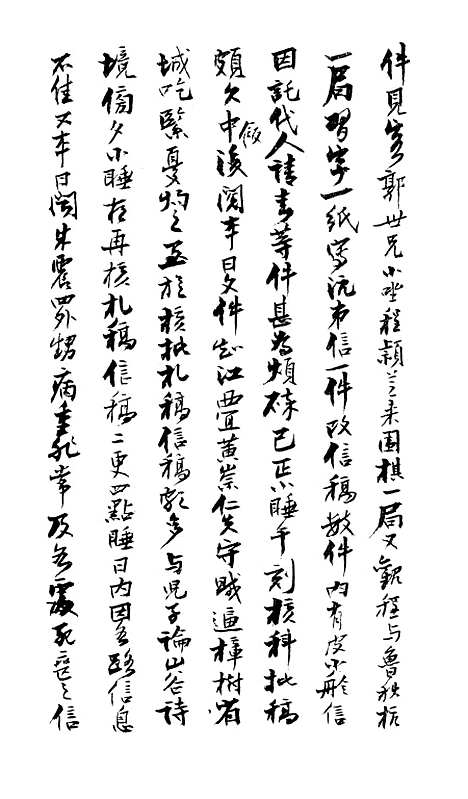 件見客郭世兄小坐程穎芝来围棋一局又觀程与魯秋杭
一局習字一紙寫沅弟信一件改信稿數件内有皮小舲信
因託代人請書等件甚为煩碎巳正小睡午刻核科批稿
頗久中飯後閱本日文件知江西宜黄崇仁失守賊逼樟樹省
城吃緊憂灼之至旋核批札稿信稿頗多与児子論山谷詩
境傍夕小睡夜再核札稿信稿二更四點睡日内因各路信息
不佳又本日聞朱震四外甥病重非常及各處死喪之信